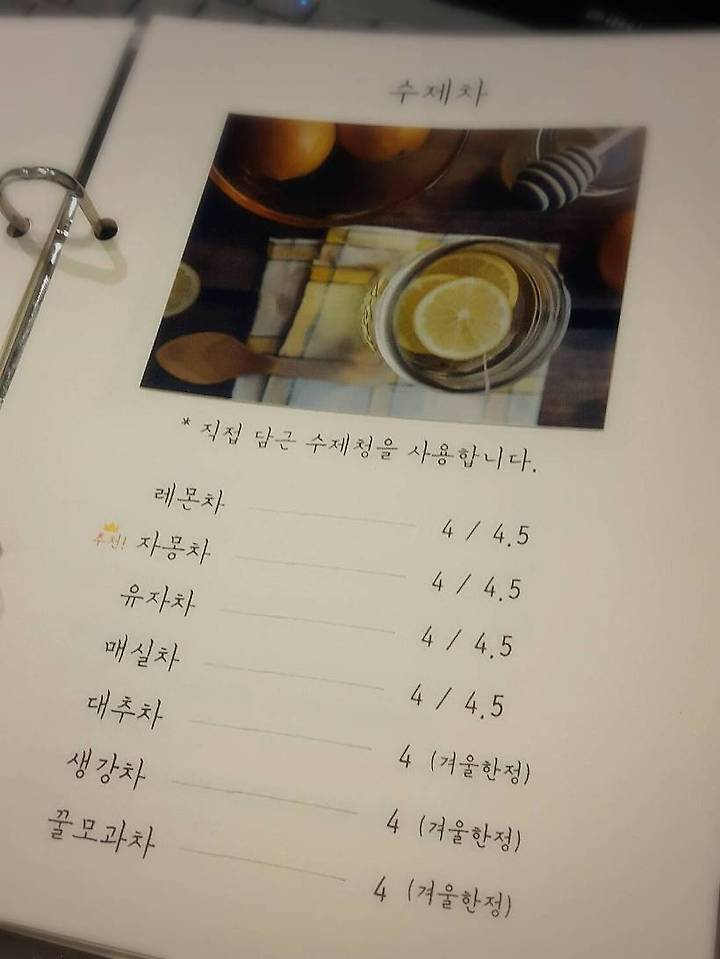 수제차
* 직접 담근 수제청을 사용합니다.
레몬차 4 / 4.5
추천! 자몽차 4 / 4.5
유자차 4 / 4.5
매실차 4 / 4.5
대추차 4 (겨울한정)
생강차 4 (겨울한정)
꿀모과차 4 (겨울한정)